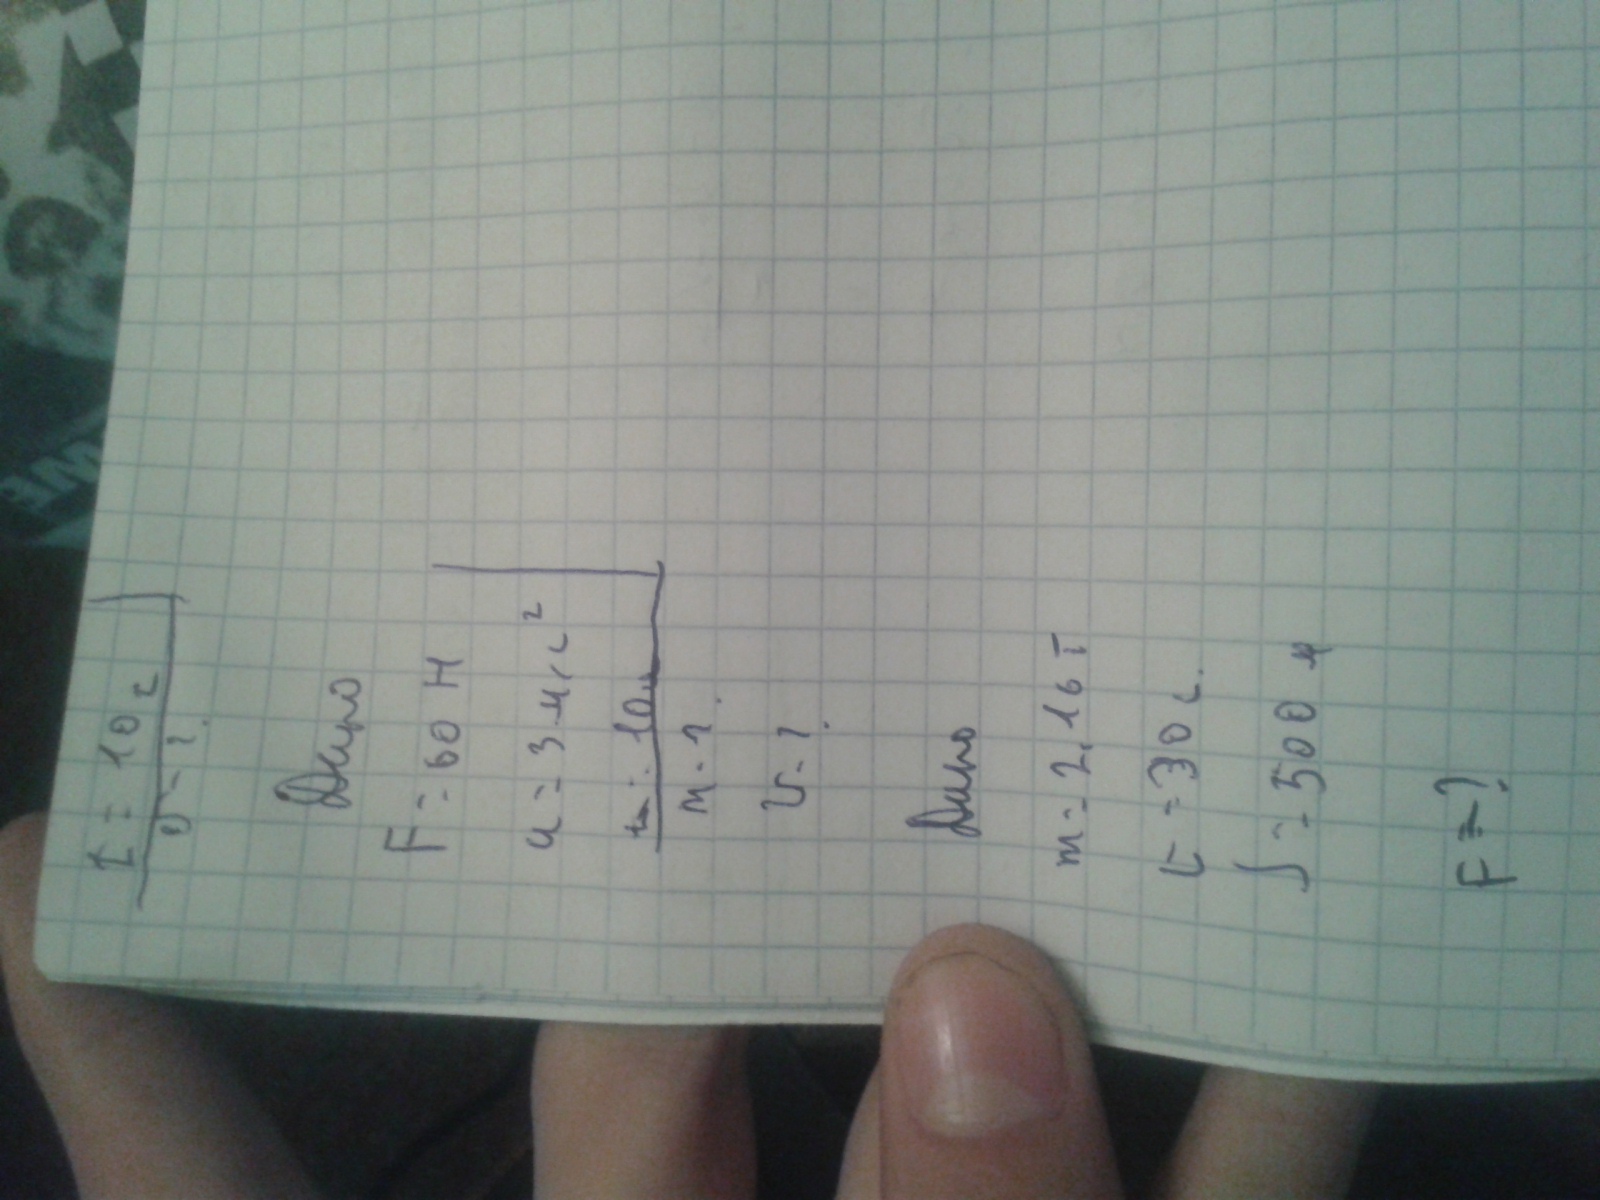 t = 10 с
υ - ?
Дано
F = 60 Н
a = 3 м/с²
t = 10
m - ?
υ - ?
Дано
m = 2,16 т
t = 30 с.
S = 500 м
F = ?